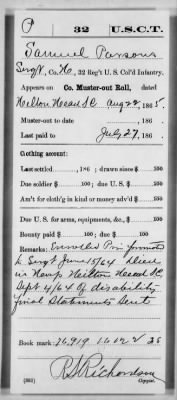 P | 32 | U.S.C.T.
Samuel Parsons
Serg't, Co. H, 32 Reg't U. S. Col'd Infantry.
Appears on Co. Muster-out Roll, dated
Hilton Head S C Aug 22, 1865.
Muster-out to date , 186 .
Last paid to July 27, 186 .
Clothing account:
Last settled , 186 ; drawn since $ 100
Due soldier $ 100; due U. S. $ 100
Am't for cloth'g in kind or money adv'd $ 100
Due U. S. for arms, equipments, &c., $ 100
Bounty paid $ 100; due $ 100
Remarks: Enrolled Pri promoted
to Sergt June 15/64 Died
in Hosp Hilton Head S C
Sept 4/64 of disability
final Statements Sent
Book mark:
R S Richardson
Copyist.